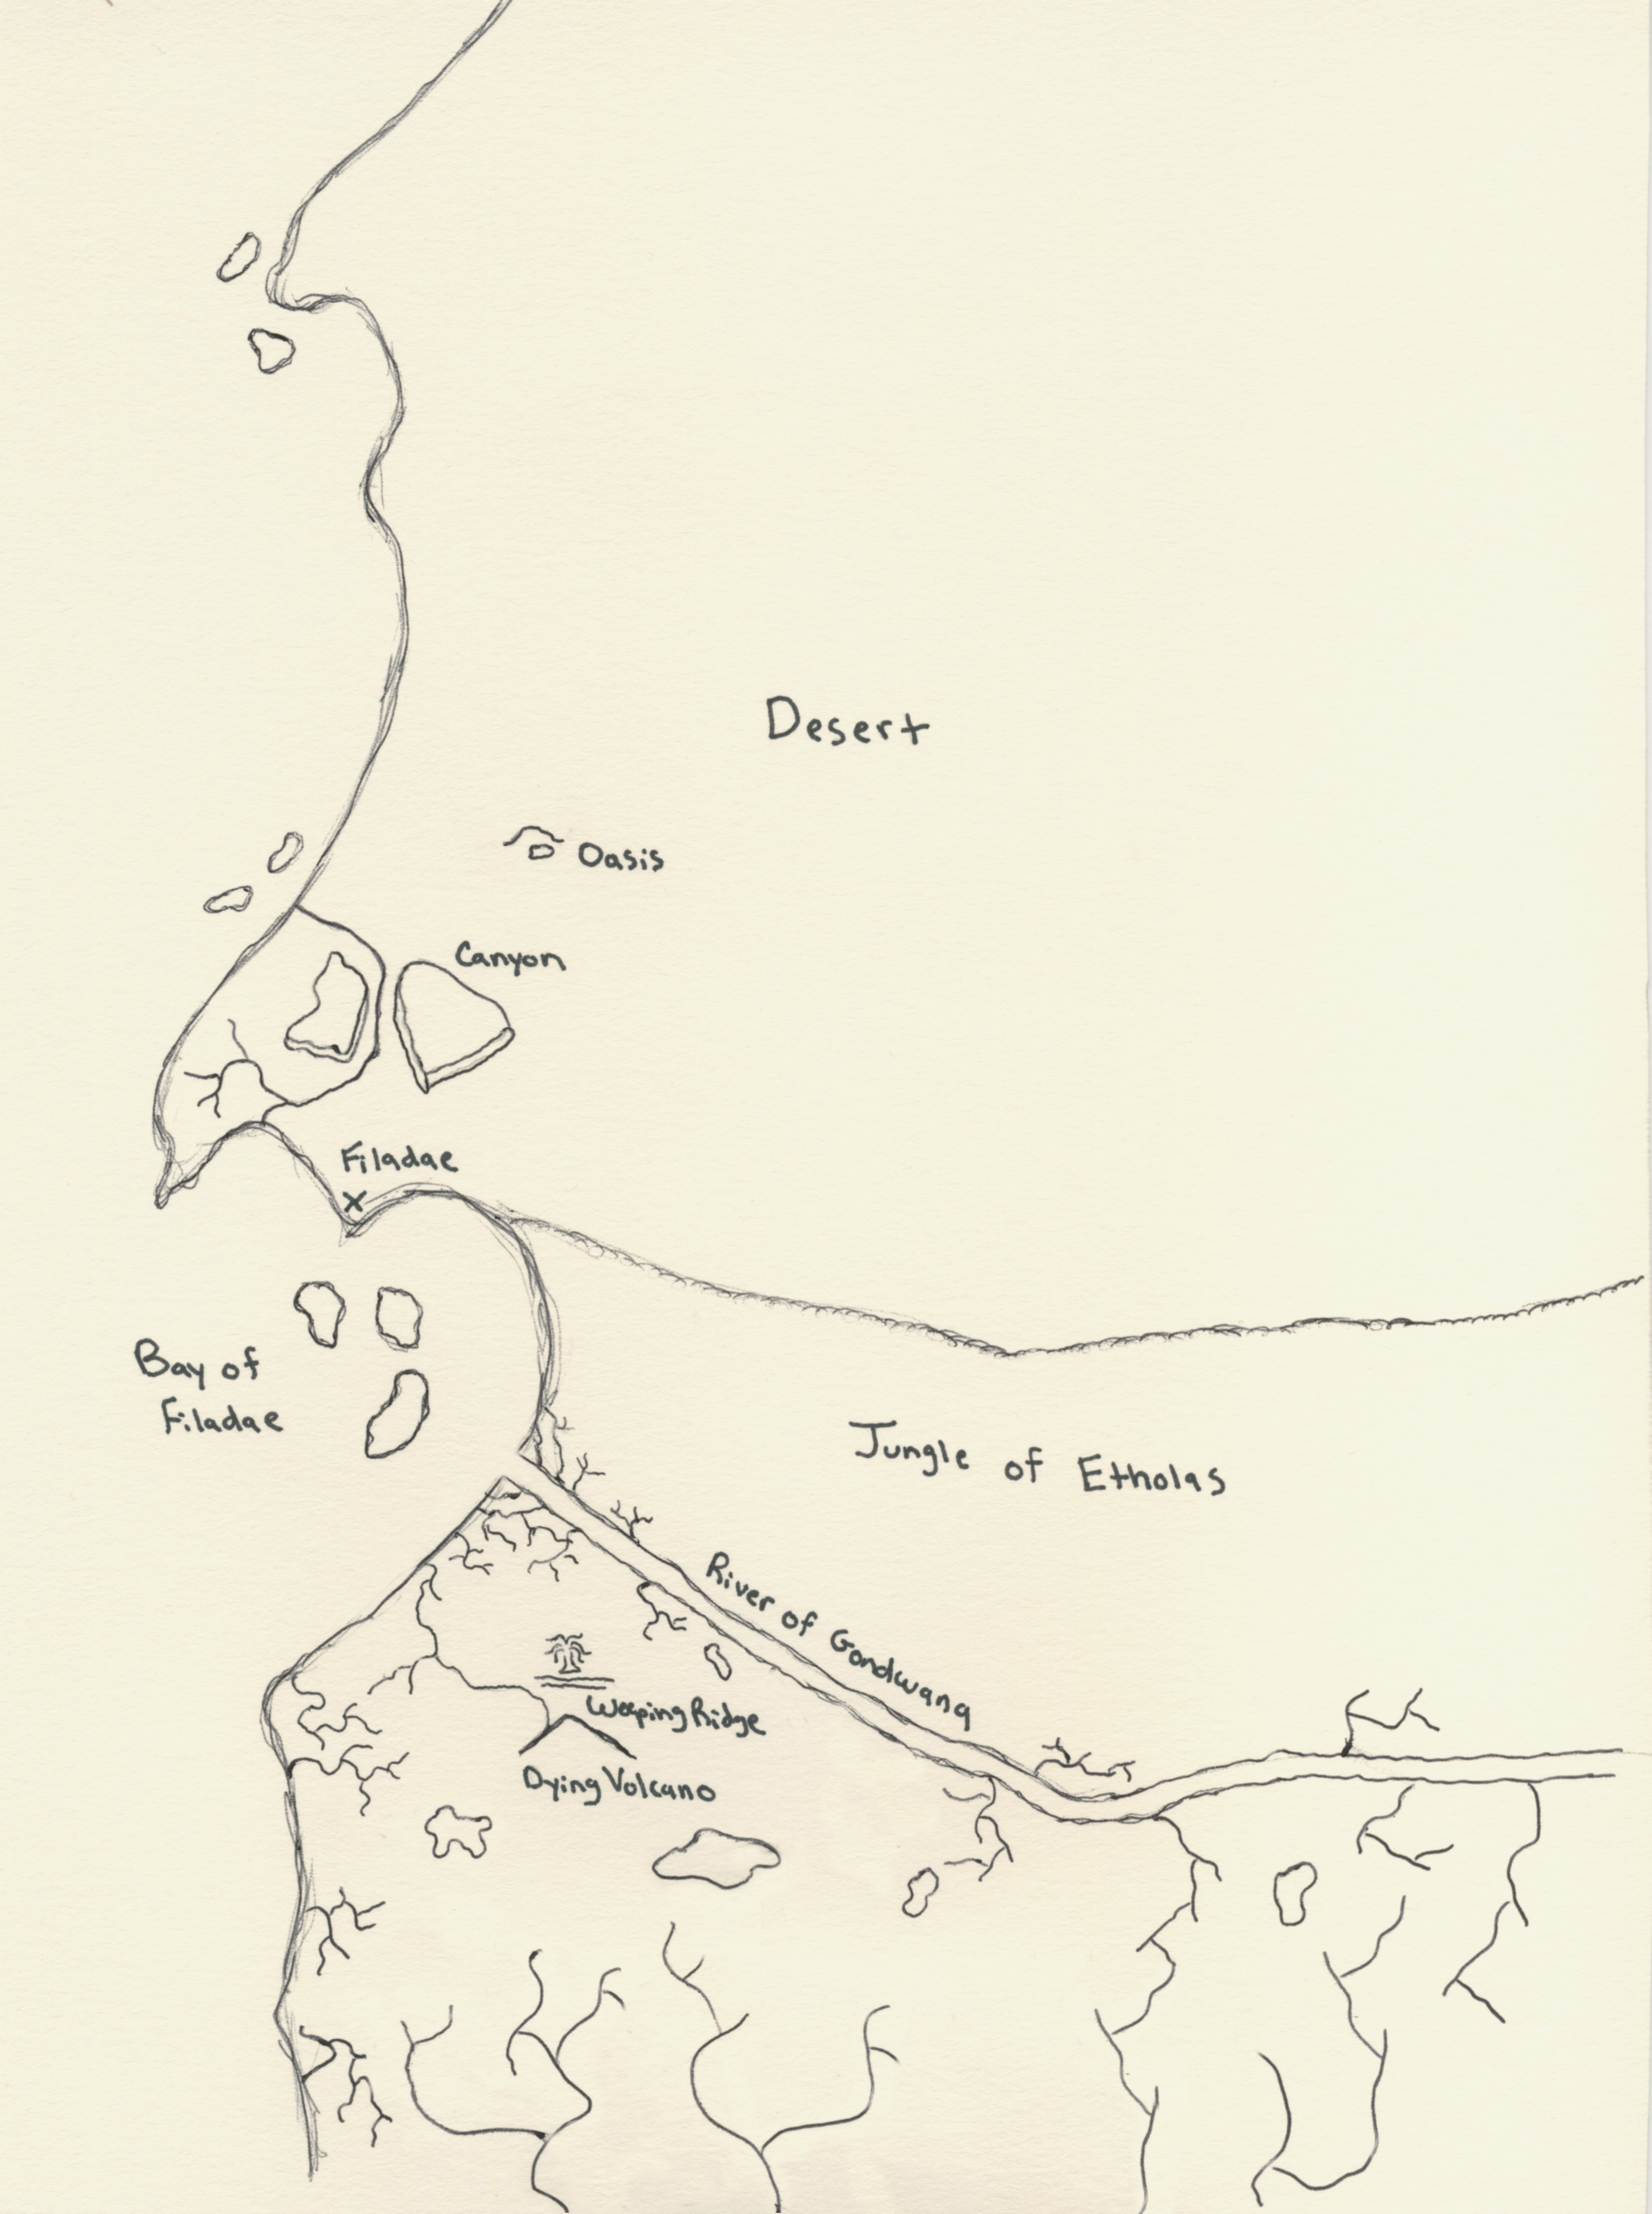 Desert
Oasis
Canyon
Filadae
Bay of
Filadae
Jungle of Etholas
River of Gondwana
Weeping Ridge
Dying Volcano